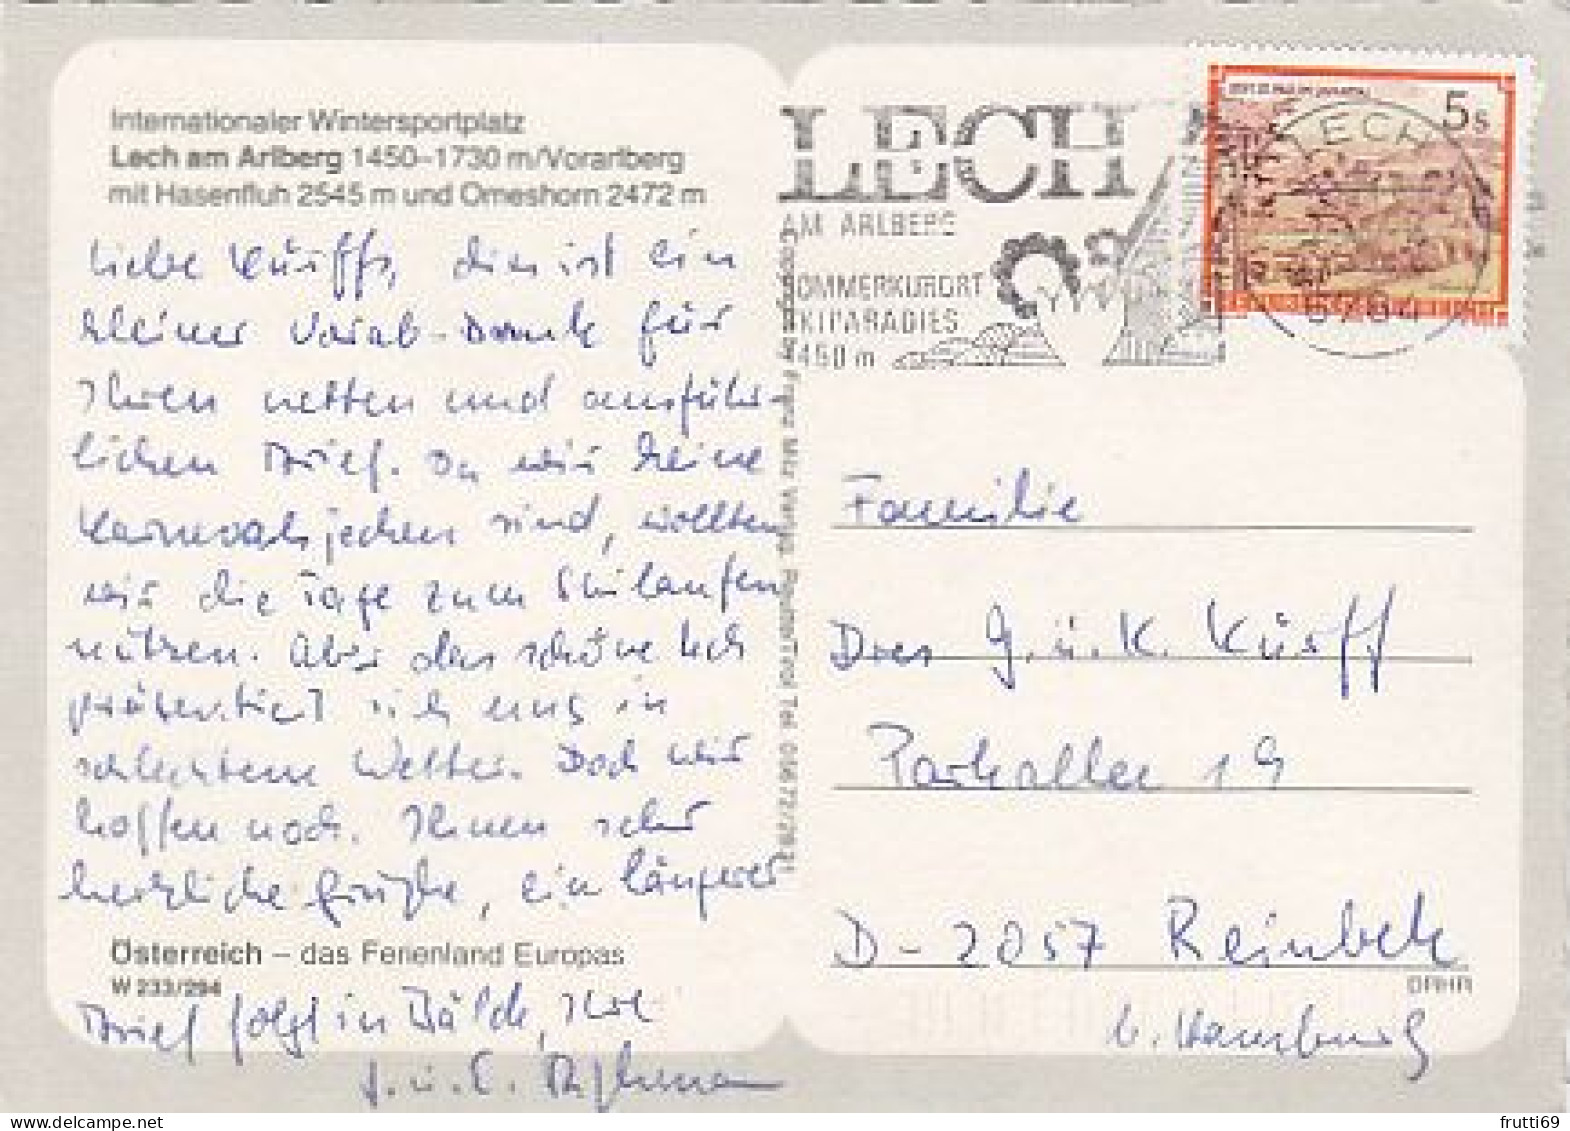 Internationaler Wintersportplatz
Lech am Arlberg 1450–1730 m/Vorarlberg
mit Hasenfluh 2545 m und Omeshorn 2472 m
Liebe Kürffs, dies ist ein
kleiner Vorab-Dank für
Ihren netten und ausführ-
lichen Brief. Da wir keine
Karnevalsjecken sind, wollten
wir die Tage zum Skilaufen
nützen. Aber das schöne Lech
präsentiert sich uns in
schlechtem Wetter. Doch wir
hoffen noch. Ihnen sehr
herzliche Grüße, ein längerer
Österreich – das Ferienland Europas
W 233/294
Brief folgt in Bälde, Ihre
J. u. C.
Copyright by Franz Milz Verlag, Reutte/Tirol Tel. 05672/2821
LECH
AM ARLBERG
OMMERKURORT
KIPARADIES
450 m
5 S
LECH
Familie
Dres G. u. K. Kürff
Parkallee 19
D-2057 Reinbek
DRHR
b. Hamburg
frutti69